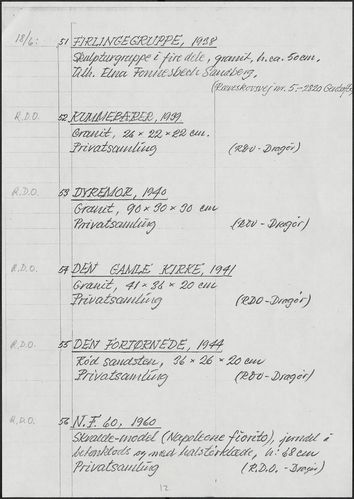 18/6: 51 FIRLINGEGRUPPE, 1938
Skulpturgruppe i fire dele, granit, h. ca. 50cm.
Tilh. Elna Fonnesbech Sandberg,
(Ræveskovsvej nr. 5. - 2820 Gentofte)
R.D.O. 52 KUMMEBÆRER, 1939
Granit, 26 × 22 × 22 cm.
Privatsamling (RDO - Dragör)
R.D.O. 53 DYREMOR, 1940
Granit, 90 × 30 × 30 cm
Privatsamling (RDO - Dragör)
R.D.O. 54 DEN GAMLE KIRKE, 1941
Granit, 41 × 36 × 20 cm
Privatsamling (RDO - Dragör)
R.D.O. 55 DEN FORTØRNEDE, 1944
Röd sandsten, 36 × 26 × 20 cm
Privatsamling (RDO - Dragör)
R.D.O. 56 N.F. 60, 1960
Skralde-model (Napoleone fiorito), jerndel i
betonklods og med halstörklæde, h: 68 cm
Privatsamling (R.D.O. - Dragör)
12